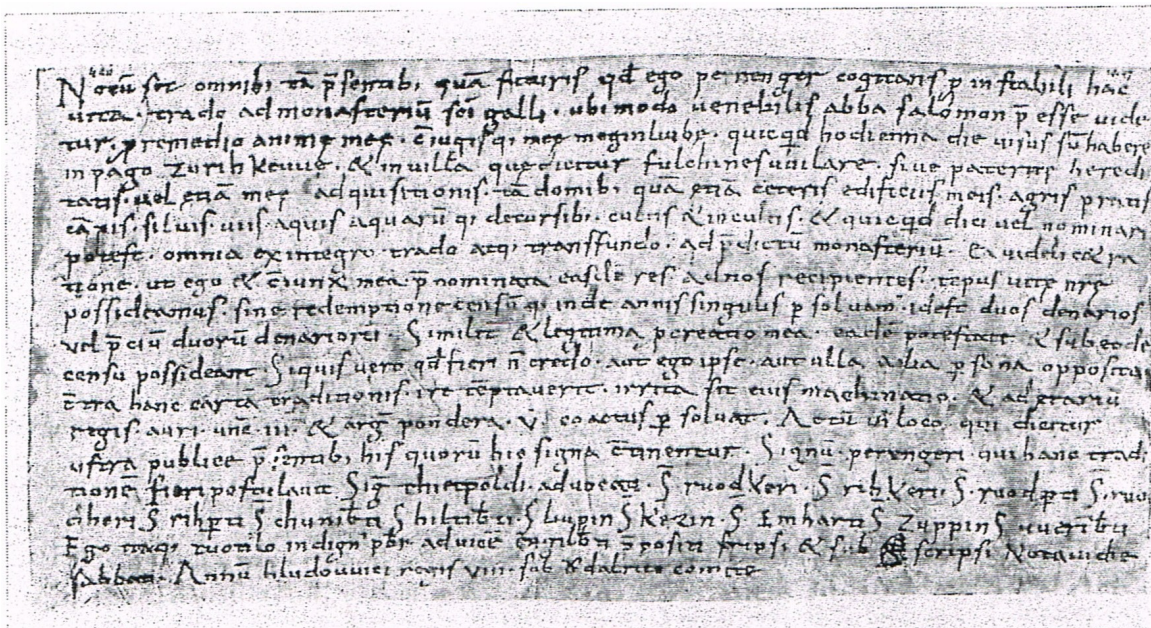 Notū sit omnibꝫ tā p̄sentibꝫ quā futuris qđ ego perenger cogitans p instabili hac
uita · trado ad monasteriū sc̄i galli · ubi modo uenebilis abba salomon p̄ esse uide
tur · p remedio animę meę · c̄iugisqꝫ meę · quicqđ hodierna die uisus sū habere
in pago Zurihkeuue · & in uilla que dicitur fulchinesuuilare · siue paternę heredi
tatis · uel etiā meę adquisitionis · tā domibꝫ quā etiā ceteris edificiis meis · agris pratis
siluis · uiis · aquis aquarūqꝫ decursibꝫ · cultis & incultis · & quicqđ dici uel nominari
potest · omnia ex integro · trado atqꝫ transfundo · ad p̄dictū monasteriū · Ea uidelic& ra
tione · ut ego & c̄iunx mea p̄nominata easdē res ad nos recipientes · tēpus uitę nr̄ę
possideamus · sub redemptione censūqꝫ inde annis singulis psoluam · idest duos denarios
uel p̄ciū duorū denariorū · Similit̄ & legitima pcreatio mea · eadē potestate & sub eodē
censu possideant · Siquis uero qđ fieri n̄ credo · aut ego ipse · aut ulla alia psona opposita
c̄tra hanc cartā traditionis · ire tēptauerit · irrita sit eius machinatio · & ad erariū
regis · auri · unc̄ · III · & arḡ pondera · V · coactus psoluat · Actū in loco qui dicitur
ustra publice p̄sentibꝫ his quorū hic signa c̄tinentur · Signū · perengeri · qui hanc tradi
tionē fieri postulauit · Siḡ thietpoldi · aduocati · S̄ ruodkeri · S̄ rihkeri · S̄ ruodpti · S̄ ruo
cheri S̄ rihpti S̄ chunibti S̄ hiltibti · S̄ liupin S̄ Kezin · S̄ Einharti S̄ Zuppin S̄ uueribti
Ego itaqꝫ tuotilo indign̄ pbr̄ ad uicē p̄positi scripsi & sub scripsi Notaui diē
sabbati · Annū hludouuici regis VIII · sub adalrito comite